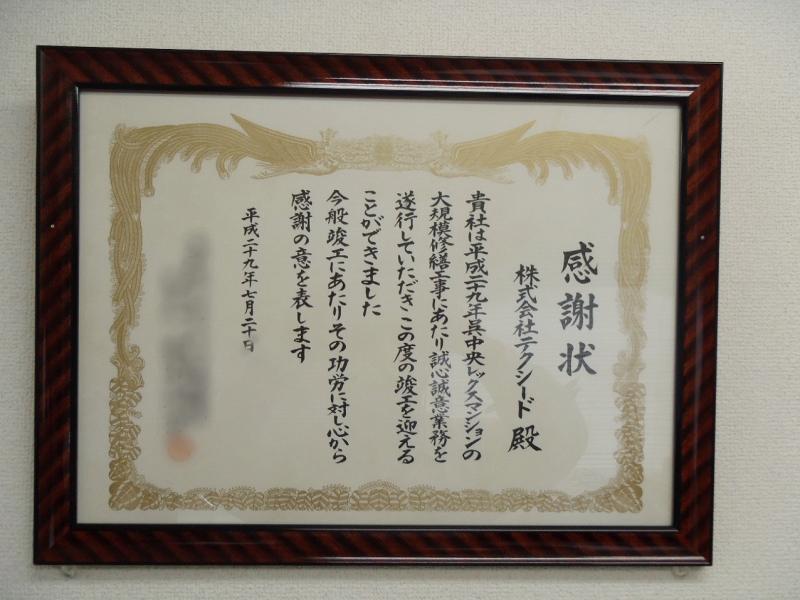 感謝状
株式会社テクシード 殿
貴社は平成二十九年呉中央レックスマンションの
大規模修繕工事にあたり誠心誠意業務を
遂行していただきこの度の竣工を迎える
ことができました
今般竣工にあたりその功労に対し心から
感謝の意を表します
平成二十九年七月二十日